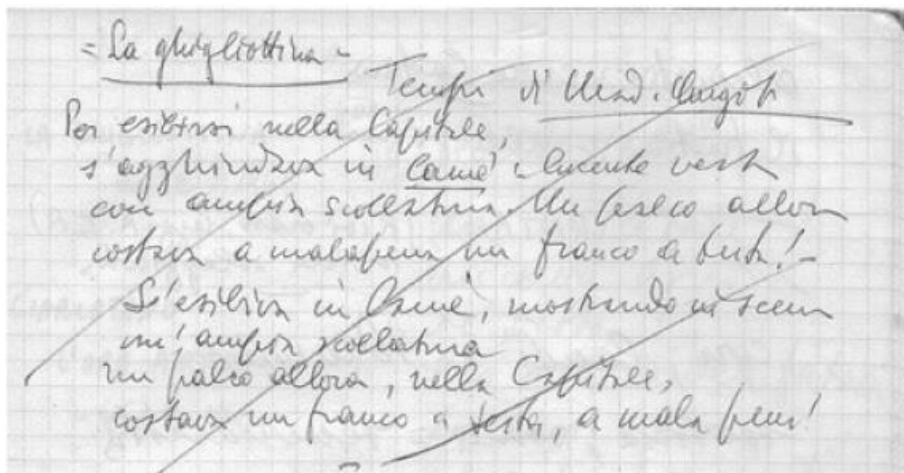 = La ghigliottina =
Tempi di Mad. Angot
Per esibirsi nella Capitale,
s'agghindava in lamé: lucente veste
con ampia scollatura. Un palco allora
costava a malapena un franco a testa! -
S'esibiva in lamé, mostrando in scena
un'ampia scollatura
un palco allora, nella Capitale,
costava un franco a testa, a mala pena!